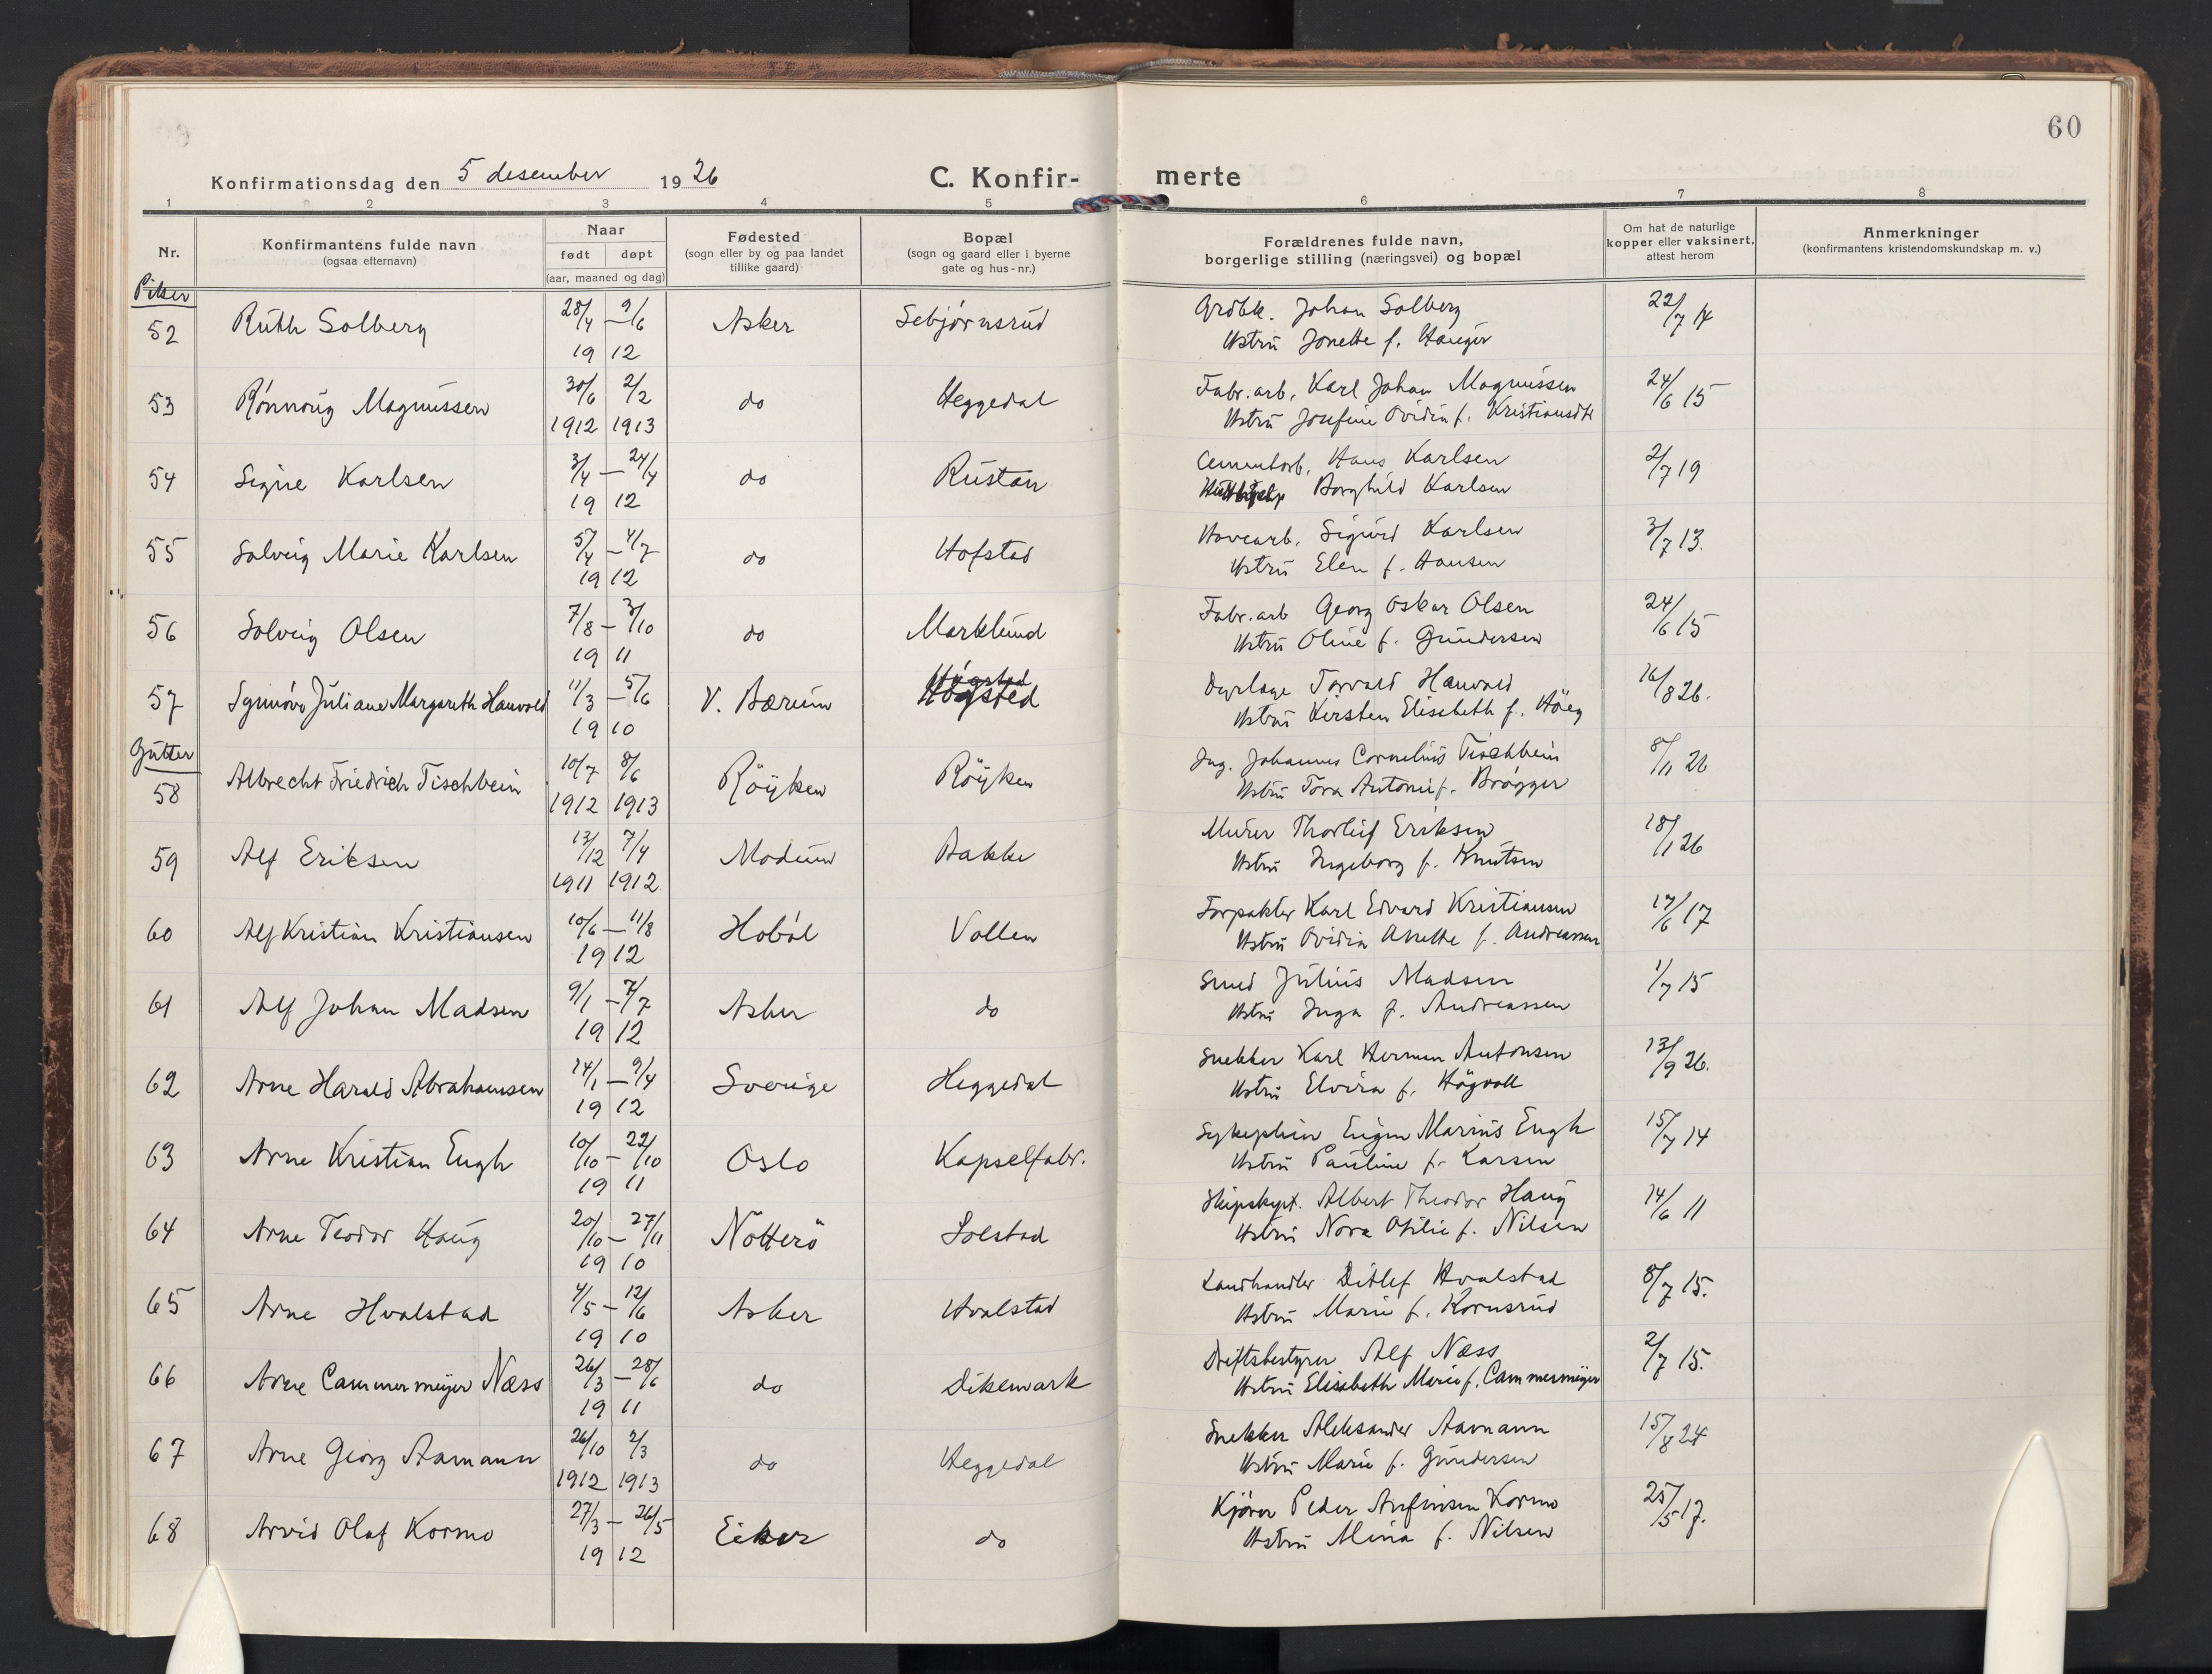 60
Konfirmationsdag den 5 desember 1926
C. Konfir-merte
1 2 3 4 5 6 7 8
Nr.
Konfirmantens fulde navn
(ogsaa efternavn)
Naar
født døpt
(aar, maaned og dag)
Fødested
(sogn eller by og paa landet
tillike gaard)
Bopæl
(sogn og gaard eller i byerne
gate og hus-nr.)
Forældrenes fulde navn,
borgerlige stilling (næringsvei) og bopæl
Om hat de naturlige
kopper eller vaksinert,
attest herom
Anmerkninger
(konfirmantens kristendomskundskap m. v.)
Piker
52 Ruth Solberg 28/4 – 9/6 Asker Sebjørnsrud Grdbk. Johan Solberg 22/7 14
19 12 Hstru Jonette f. Hauger
53 Rønnaug Magnussen 30/6 2/2 do Heggedal Fabr.arb. Karl Johan Magnussen 24/6 15
1912 1913 Hstru Josefine Ovidia f. Kristiansdt
54 Signe Karlsen 3/4 – 24/4 do Rustan Cementarb. Hans Karlsen 2/7 19
19 12 Borghild Karlsen
55 Solveig Marie Karlsen 5/4 – 4/7 do Hofstad Havearb. Sigurd Karlsen 3/7 13.
19 12 Hstru Elen f. Hansen
56 Solveig Olsen 7/8 – 3/10 do Marklund Fabr.arb Georg Oskar Olsen 24/6 15
19 11 Hstru Oline f. Gundersen
57 Synnöve Juliane Margareth Hauvold 11/3 – 5/6 V. Bærum Høgsted Dyrlæge Torvald Hauvold 16/8 26.
19 10 Hstru Kirsten Elisebeth f. Höeg
Gutter
58 Albrecht Friedrich Tischbein 10/7 8/6 Röyken Röyken Ing. Johannes Cornelius Tischbein 8/11 26
1912 1913 Hstru Tora Antonie f. Brøgger
59 Alf Eriksen 13/12 7/4 Modum Bakke Murer Thorleif Eriksen 18/1 26
1911 1912. Hstru Ingeborg f. Knutsen
60 Alf Kristian Kristiansen 10/6 – 11/8 Hobøl Vollen Forpakter Karl Edvard Kristiansen 17/6 17
19 12 Hstru Ovidia Anette f. Andreassen
61 Alf Johan Madsen 9/1 – 7/7 Asker do Smed Julius Madsen 1/7 15
19 12 Hstru Inga f. Andreassen
62 Arne Harald Abrahamsen 14/1 – 9/4 Sverige Heggedal Snekker Karl Herman Antonsen 13/9 26.
19 12 Hstru Elvira f. Högvall
63 Arne Kristian Engh 10/10 – 22/10 Oslo Kapselfabr. Sykepleier Eugen Marius Engh 15/7 14
19 11 Hstru Pauline f. Larsen
64 Arne Teodor Haug 20/10 – 27/11 Nötterö Solstad Skipskapt. Albert Theodor Haug 14/6 11
19 10 Hstru Nora Otilie f. Nilsen
65 Arne Hvalstad 4/5 – 12/6 Asker Hvalstad Landhandler Ditlef Hvalstad 8/7 15.
19 10 Hstru Marie f. Kornsrud
66 Arne Cammermeijer Næss 26/3 – 28/6 do Dikemark Driftsbestyrer Alf Næss 2/7 15.
19 11 Hstru Elisabeth Marie f. Cammermeijer
67 Arne Georg Aamann 26/10 2/3 do Heggedal Snekker Aleksander Aamann 15/8 24
1912 1913 Hstru Marie f. Gundersen
68 Arvid Olaf Kormo 27/3 – 26/5 Eiker do Kjörer Peder Anfinsen Kormo 25/5 17.
19 12 Hstru Mina f. Nilsen